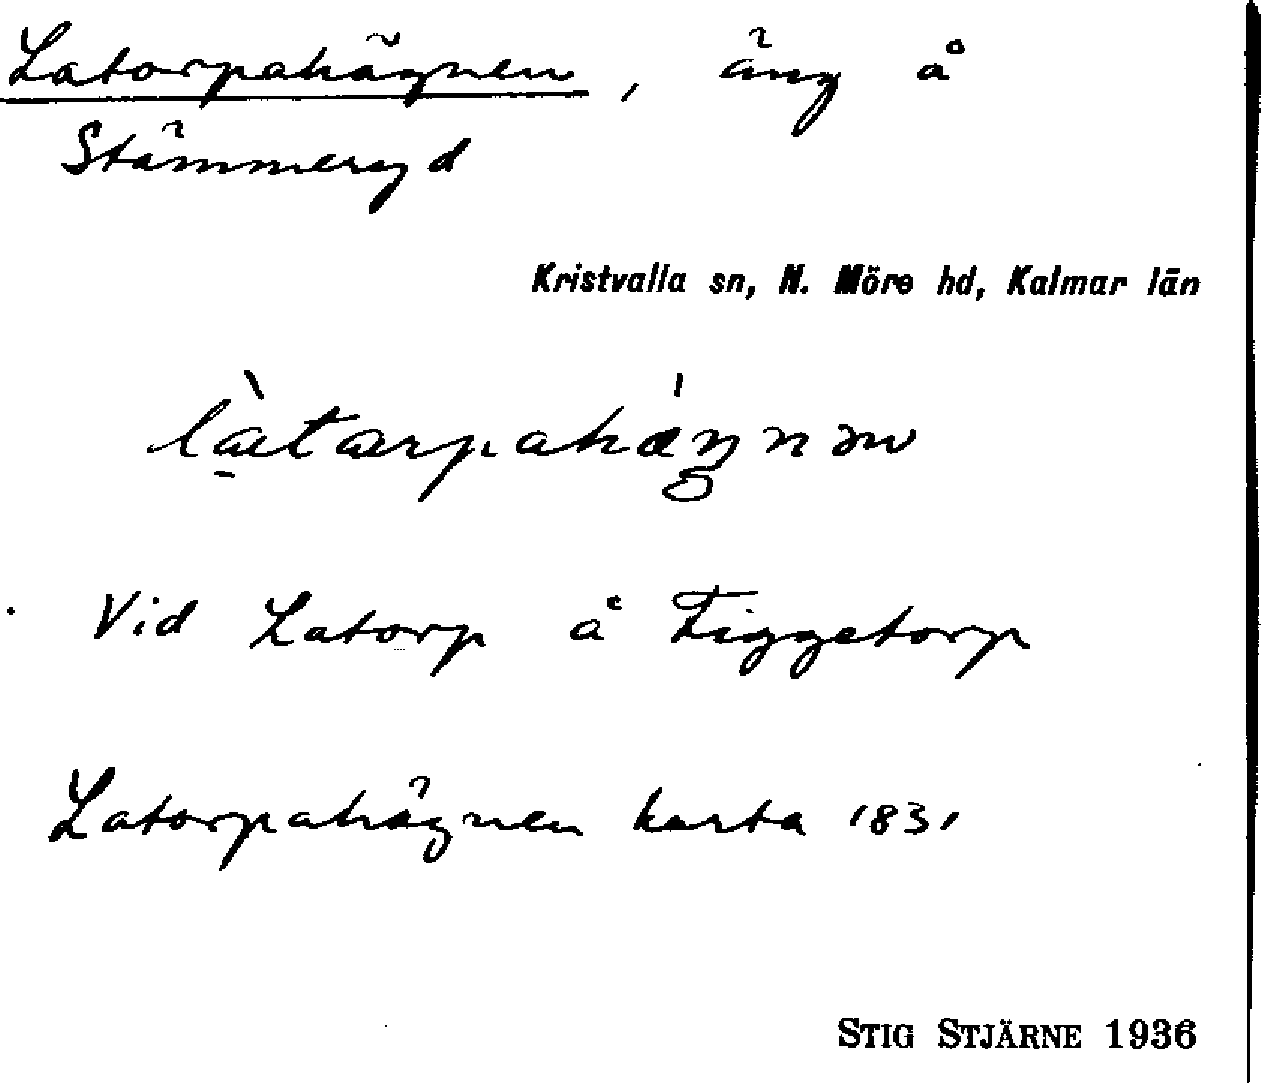 Latorpahägnen, äng å
Stämmeryd
Kristvalla sn, N. Möre hd, Kalmar län
Vid Latorp å Figgetorp
Latorpahägnen karta 1831
STIG STJÄRNE 1936